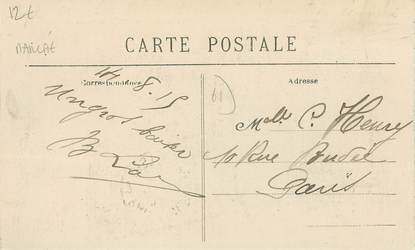 12€
MARCHÉ
CARTE POSTALE
Correspondance
Adresse
14.8.15
Un gros baiser
B
61
Melle C. Henry
10 Rue Budé
Paris